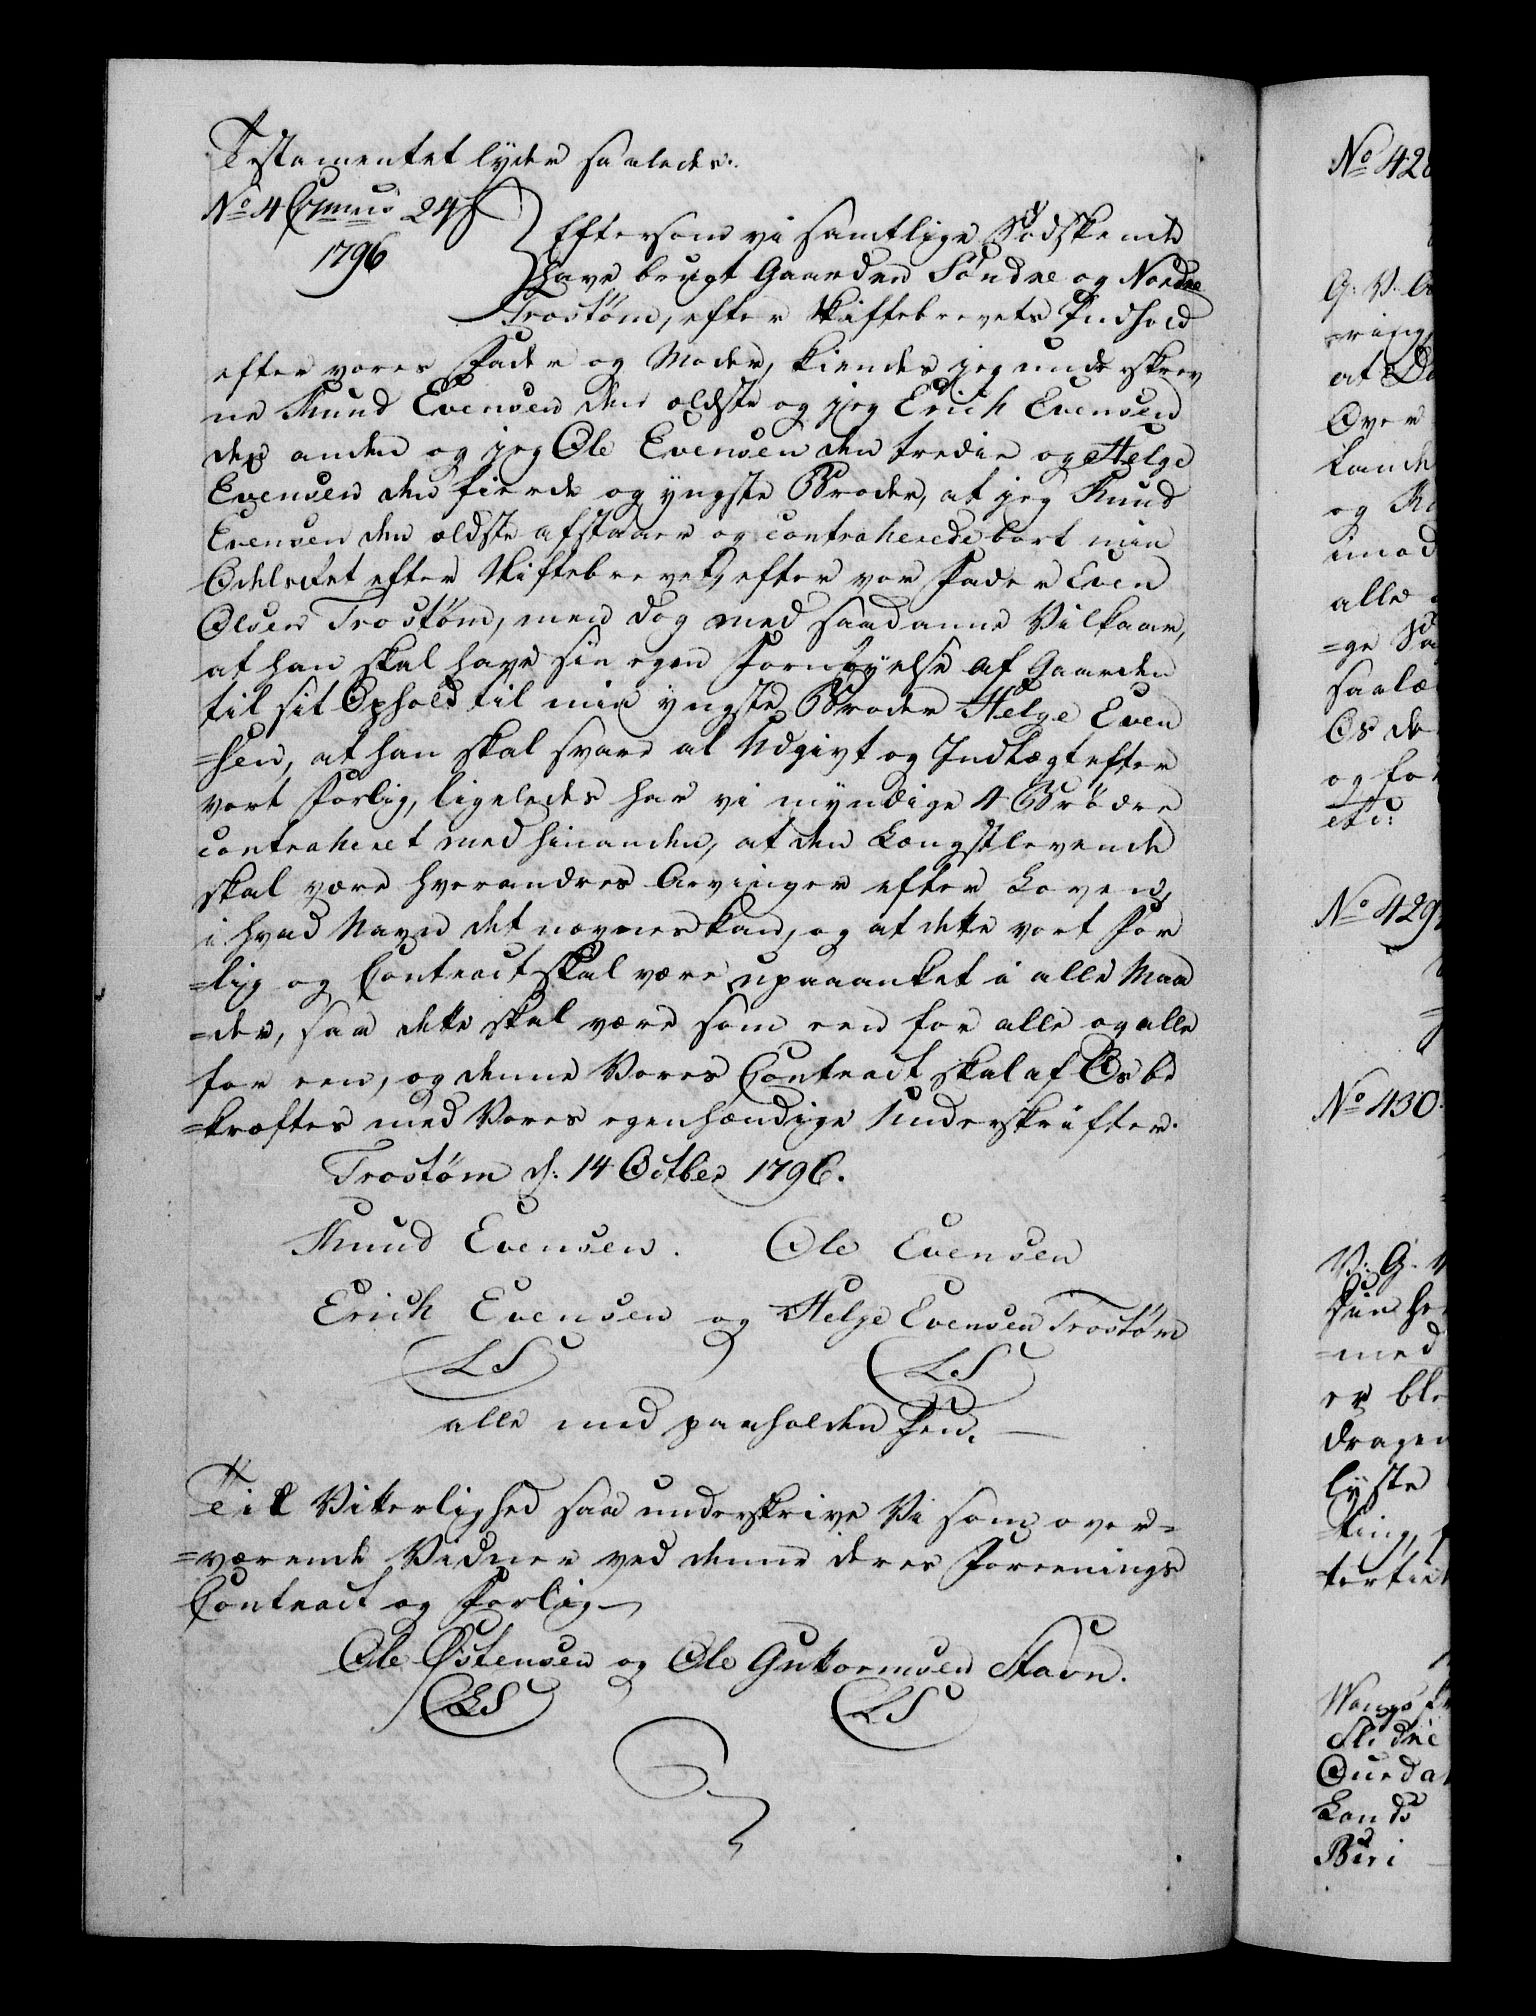 Testamentet lyder saaledes:
No 4 24
1796
Eftersom vi samtlige Sødskende
have brugt Gaarden Søndre og Nordre
Trostøm, efter Skiftebrevets Indhold
efter vores Fader og Moder, kiender jeg underskrev
ne Knud Evensen den ældste og jeg Erich Evensen
den anden og jeg Ole Evensen den tredie og Helge
Evensen den fierde og yngste Broder, at jeg Knud
Evensen den ældste afstaaer og contraherede bort min
Odelsret efter Skiftebrevet, efter vor Fader Even
Olsen Trostøm, men dog med saadanne Vilkaar,
at han skal have sin egen Fornøyelse af Gaarden
til sit Ophold til min yngste Broder Helge Even
=sen, at han skal svare al Udgivt og Indtægt efter
vort Forlig, ligeledes har vi myndige 4 Brødre
contraheret med hinanden, at den Længstlevende
skal være hverandres Arvinger efter Loven,
i hvad Navn det nævnes kan, og at dette vort For
=lig og Contract skal være upaaanket i alle Maa
=der, saa dette skal være som een for alle og alle
for een, og denne Vores Contract skal af Os be
=kræftes med Vores egenhændige Underskrifter.
Trostøm d: 14 Octber 1796.
Knud Evensen. Ole Evensen
Erich Evensen og Helge Evensen Trostøm
LS LS
alle med paaholden Pen.
Til Vitterlighed saa underskrive Vi som over=
=værende Vidner ved denne deres Foreenings
Contract og Forlig
Ole Østensen og Ole Guttormsen Stavn.
LS LS
No 428
G: V.
at
Over
Lande
og
imod
alle
=ge
saalæ
Os
og for
etc:
No 429
No 430
V: G.
=med
er ble
dragen
lyste
=ting,
Slidre
Lands
Biri